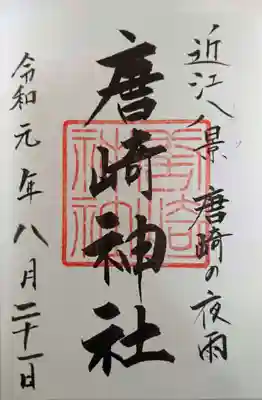 近江八景 唐崎の夜雨
唐崎神社
令和元年八月二十一日